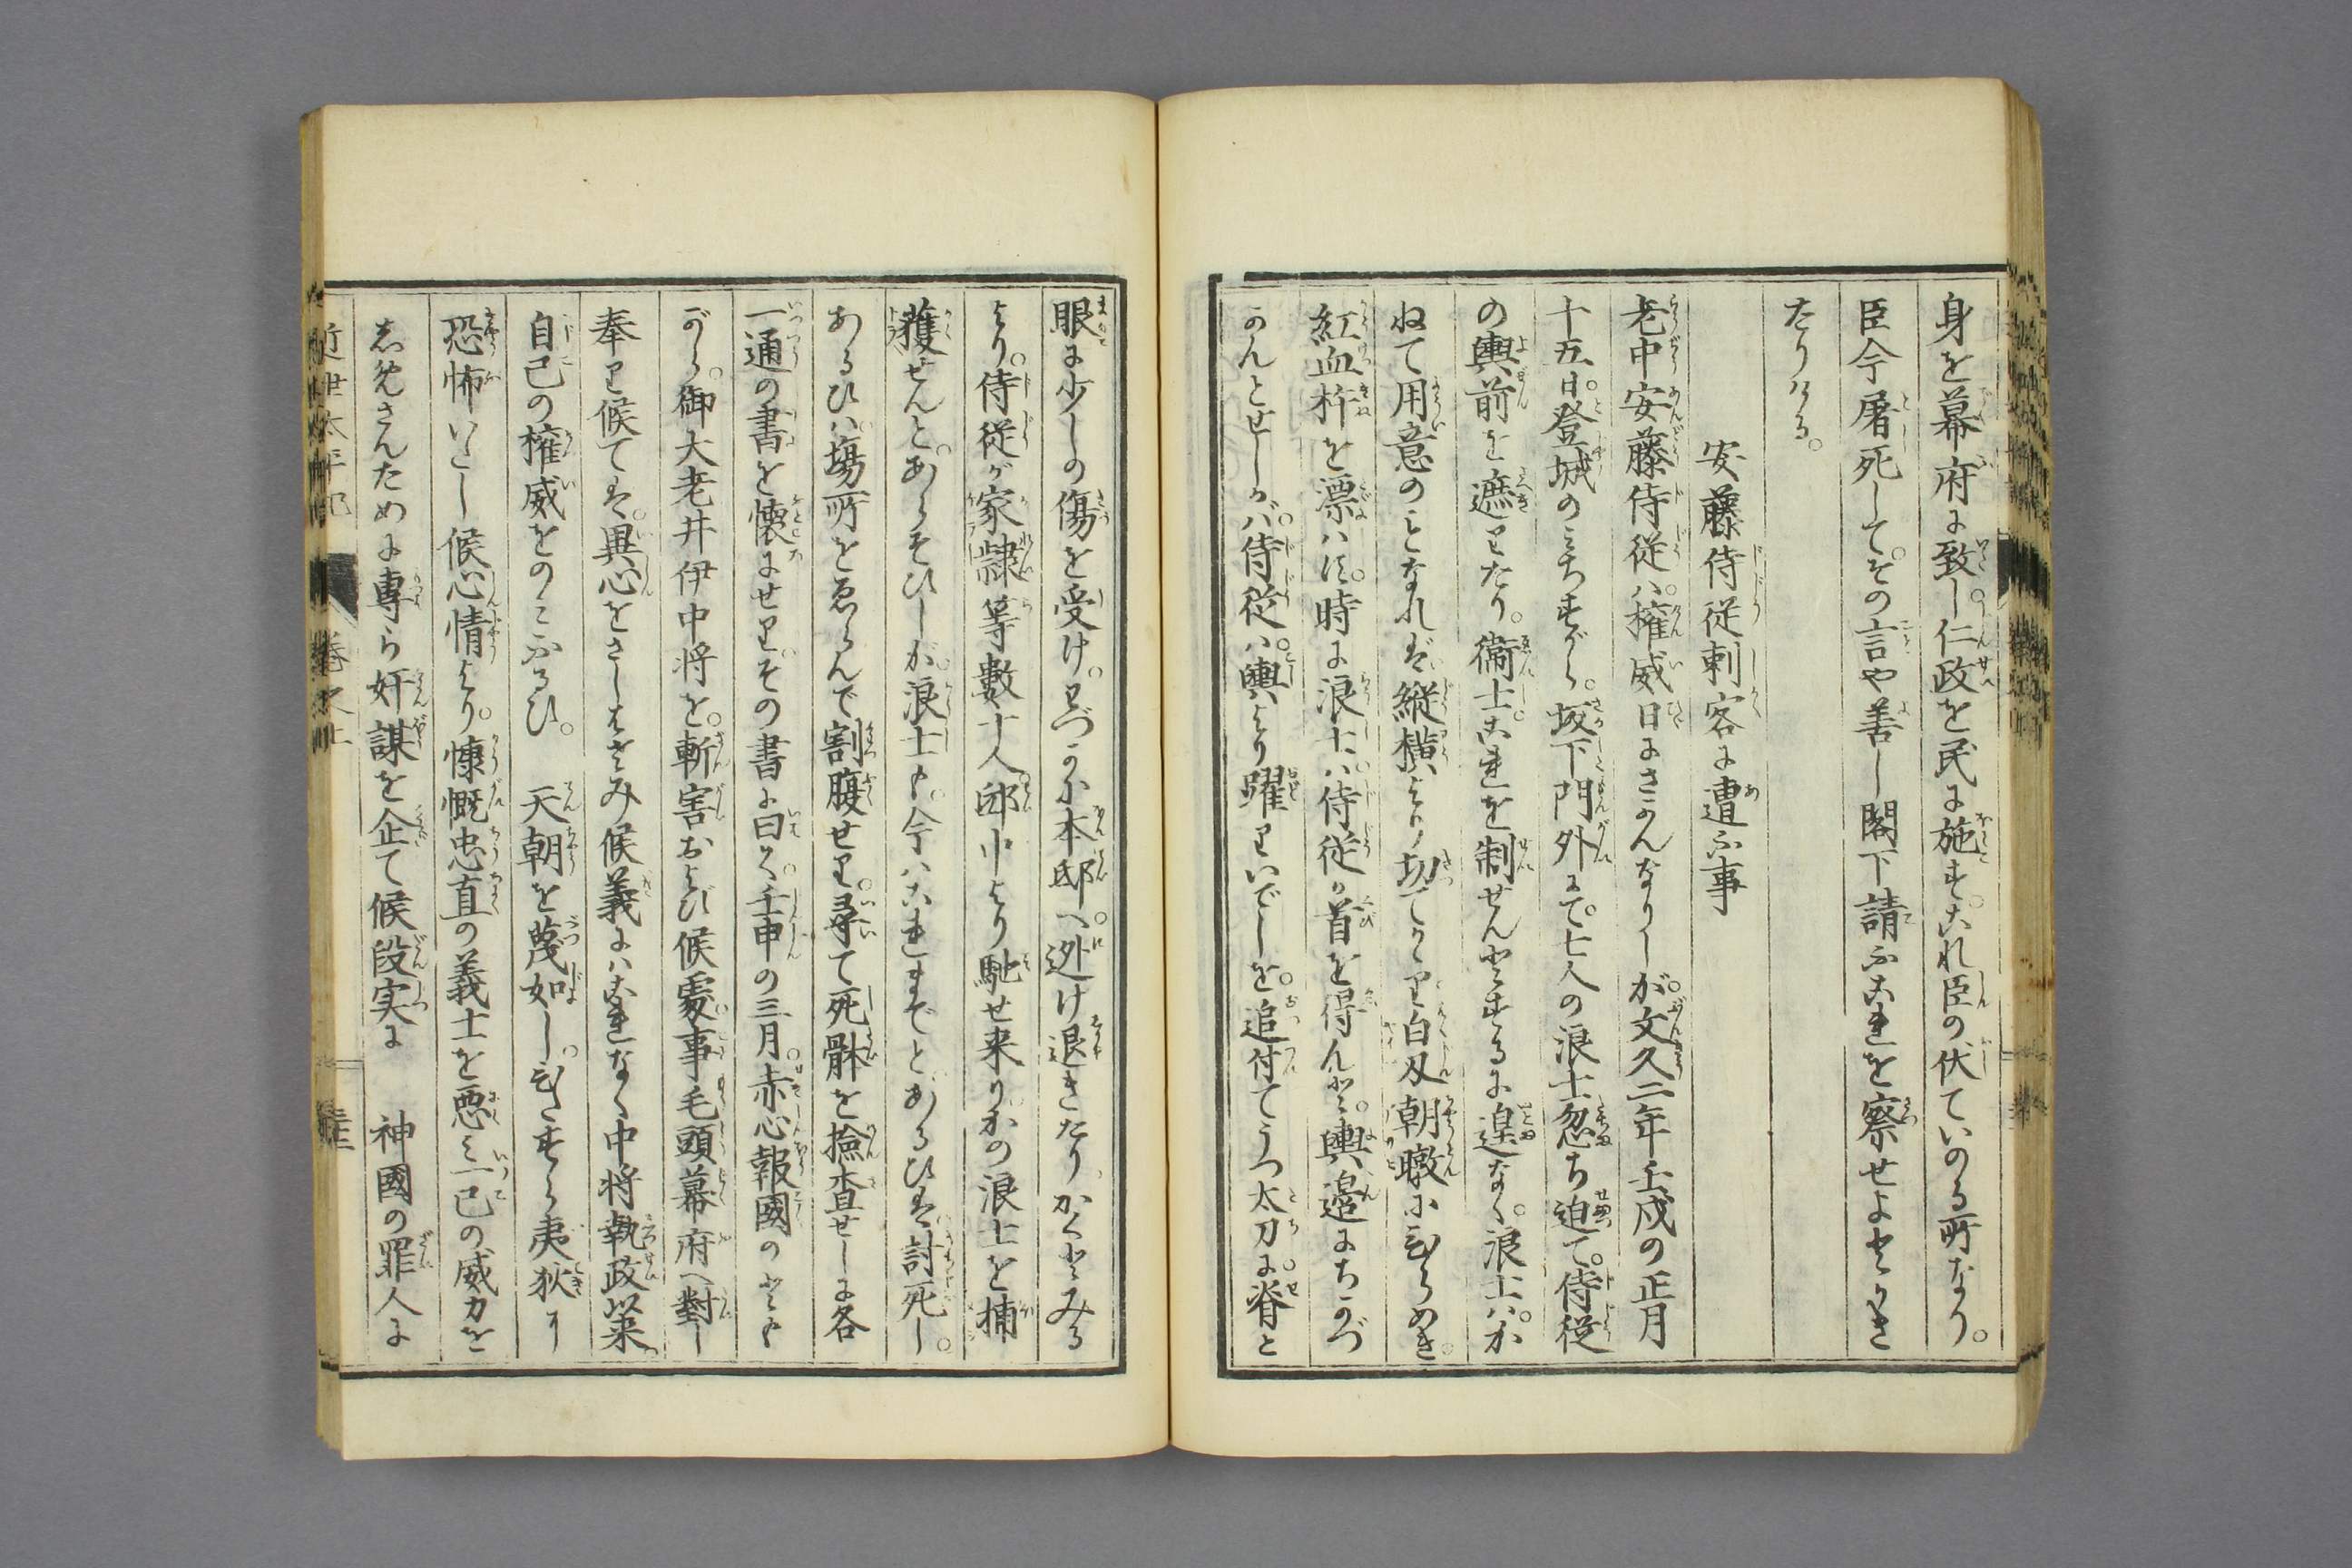 身を幕府に致し。仁政を民に施す。これ臣の伏ていのる所なり。
臣今屠死して。その言や善し閣下請ふこれを察せよとかき
たりける。
安藤侍従刺客に遭ふ事
老中安藤侍従ハ。権威日にさかんなりしが。文久二年壬戌の正月
十五日。登城のみちすがら。坂下門外にて。七人の浪士忽ち迫て。侍従
の輿前を遮りたり。衞士。これを制せんとするに遑なく。浪士ハ。か
ねて用意のことなれば。縦横より切てかゝり白刄朝暾にひらめき。
紅血杵を漂ハす。時に浪士ハ。侍従が首を得んと。輿邉にちかづ
かんとせしかバ。侍従ハ。輿より躍りいでしを。追付てうつ太刀に。脊と
眼に少しの傷を受け。わづかに本邸へ。迯け退きたりかくとみる
より。侍従が家隷等數十人。邸中より馳せ来りかの浪士を捕
獲せんと。あらそひしが。浪士も。今ハこれまでと。あるひは討死し。
あるひハ場所をゑらんで割腹せり。尋て死骸を撿査せしに各
一通の書を懐にせりその書に曰く。壬申の三月。赤心報國のとも
がら。御大老井伊中将を。斬害および候事毛頭幕府へ對し
奉り候ては。異心をさしはさみ候義にハこれなく中将執政以来
自己の権威をのミふるひ。 天朝を蔑如し。ひたすら夷狄を
恐怖いたし候心情より。慷慨忠直の義士を悪ミ一己の威力を
しめさんために専ら奸謀を企て候段実に 神國の罪人に
近世太平記 巻之上